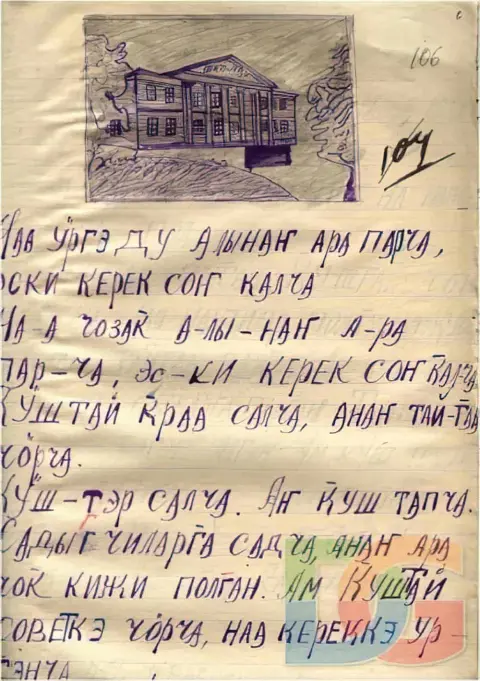 106
104
Наа ӱргэдӱ алынаҥ ара парча,
эски керек соҥ калча
На-а чозак а-лы-наҥ а-ра
пар-ча, эс-ки керек соҥ калча,
Куштай краа салча, анаҥ тай-гаа
чӧрча.
Куш-тэр салча. Аҥ куш тапча.
Садыгчиларга садча, анаҥ ара
чок кижи полган. Ам Куштай
советкэ чӧрча, наа кереккэ ур-
гэнча